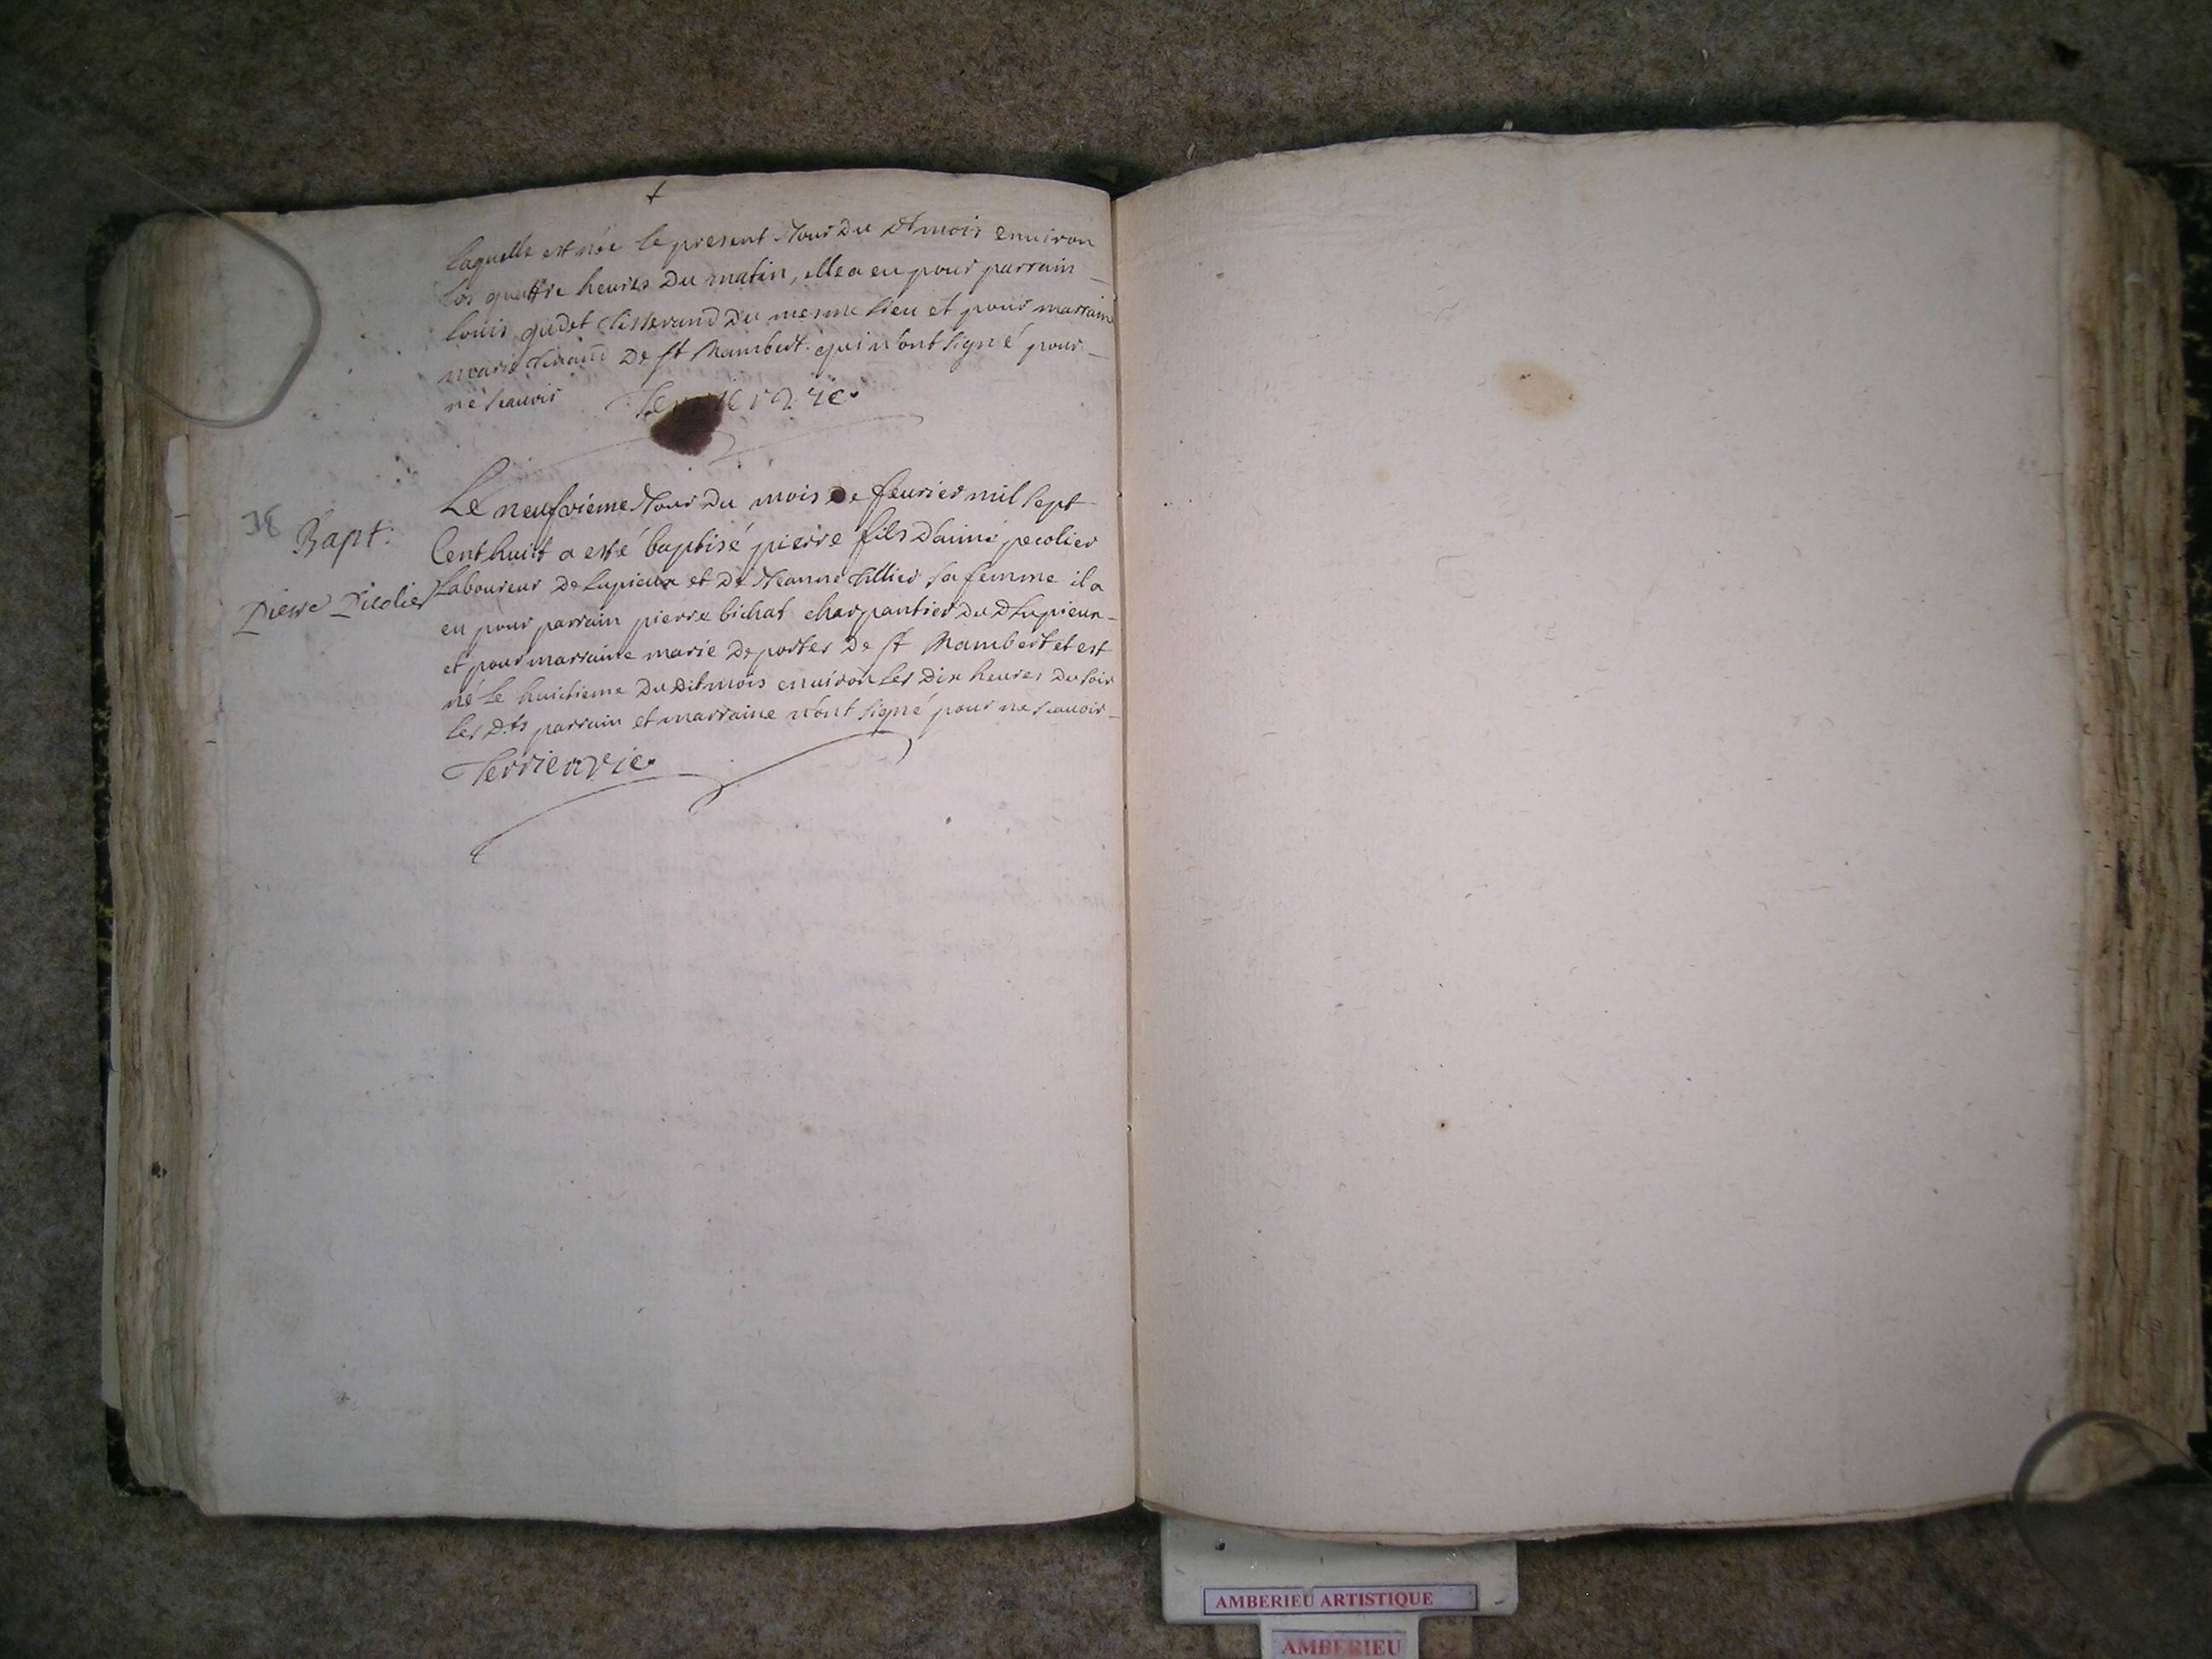 +
laquelle est née le present Jour du dt mois enuiron
les quattre heures du matin, elle a eu pour parrain
louis gudet tisserand du mesme lieu et pour marraine
marie De st Rambert qui n'ont signé pour
ne scauoir Terrier vic.
Le neufvieme Jour du mois de feurier mil sept
Cent huit a esté baptisé pierre fils d'aimé pecolier
38
Bapt:
Pierre
Laboureur de Lupieux et de Jeanne tillier sa femme il a
eu pour parrain pierre bichat charpantier du d Lupieux
et pour marraine marie deportes de st Rambert et est
né le huictieme dudit mois enuiron les dix heures du soir
les dts parrain et marraine n'ont signé pour ne scauoir
Terrier vic.
AMBERIEU ARTISTIQUE
AMBERIEU